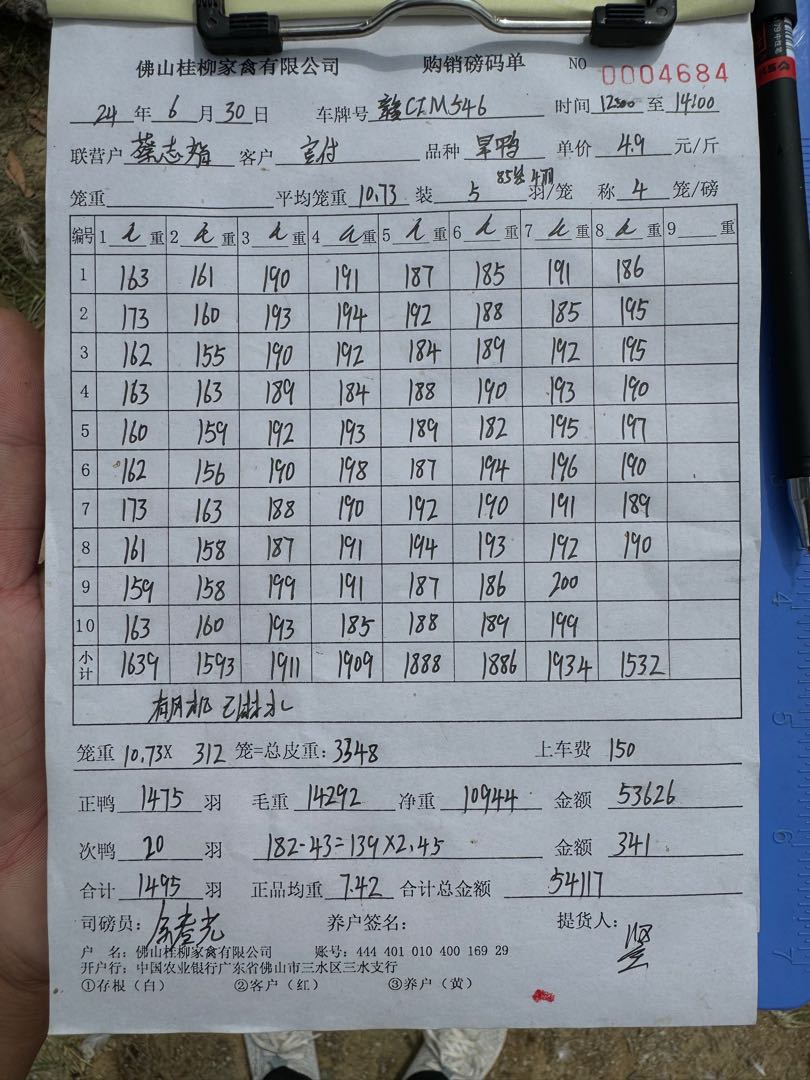 佛山桂柳家禽有限公司 购销磅码单 NO 0004684
24 年 6 月 30 日 车牌号 赣CIM546 时间 12:00 至 14:00
联营户 蔡志娟 客户 宝付 品种 旱鸭 单价 4.9 元/斤
笼重 平均笼重 10.73 装 5 羽/笼 称 4 笼/磅
编号 1 重 2 重 3 重 4 重 5 重 6 重 7 重 8 重 9 重
1 163 161 190 191 187 185 191 186
2 173 160 193 194 192 188 185 195
3 162 155 190 192 184 189 192 195
4 163 163 189 184 188 190 193 190
5 160 159 192 193 189 182 195 197
6 162 156 190 198 187 194 196 190
7 173 163 188 190 192 190 191 189
8 161 158 187 191 194 193 192 190
9 159 158 199 191 187 186 200
10 163 160 193 185 188 189 199
小计 1639 1593 1911 1909 1888 1886 1934 1532
有风机
笼重 10.73X 312 笼=总皮重: 3348 上车费 150
正鸭 1475 羽 毛重 14292 净重 10944 金额 53626
次鸭 20 羽 182-43=139×2.45 金额 341
合计 1495 羽 正品均重 7.42 合计总金额 54117
司磅员: 养户签名: 提货人:
户 名: 佛山桂柳家禽有限公司 账号: 444 401 010 400 169 29
开户行: 中国农业银行广东省佛山市三水区三水支行
①存根（白） ②客户（红） ③养户（黄）